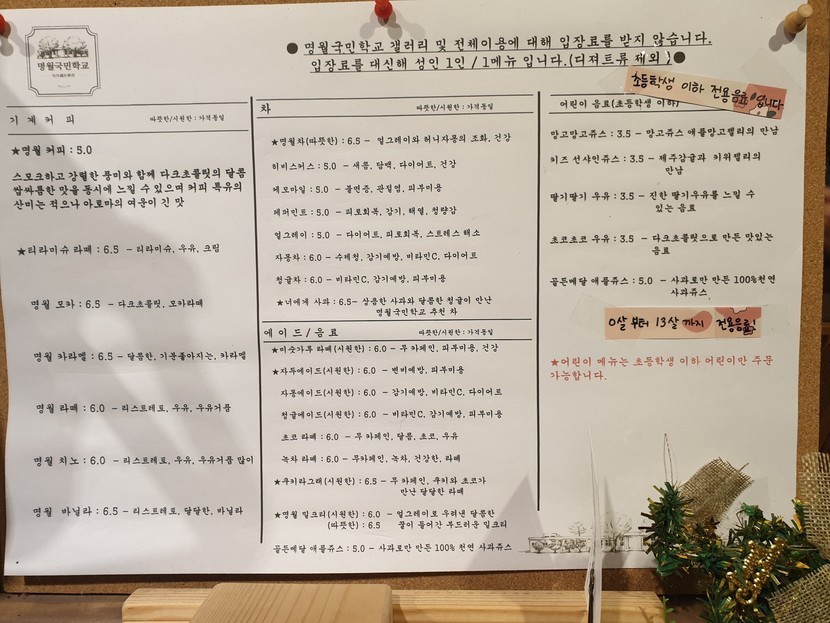 명월국민학교
● 명월국민학교 갤러리 및 전체이용에 대해 입장료를 받지 않습니다.
입장료를 대신해 성인 1인 / 1메뉴 입니다.(디져트류 제외)●
초등학생 이하 전용음료 입니다
기계커피 따뜻한/시원한 : 가격동일
★명월 커피 : 5.0
스모크하고 강렬한 풍미와 함께 다크초콜릿의 달콤
쌉싸름한 맛을 동시에 느낄 수 있으며 커피 특유의
산미는 적으나 아로마의 여운이 긴 맛
★티라미슈 라떼 : 6.5 - 티라미슈, 우유, 크림
명월 모카 : 6.5 - 다크초콜릿, 모카라떼
명월 카라멜 : 6.5 - 달콤한, 기분좋아지는, 카라멜
명월 라떼 : 6.0 - 리스트레토, 우유, 우유거품
명월 치노 : 6.0 - 리스트레토, 우유, 우유거품 많이
명월 바닐라 : 6.5 - 리스트레토, 달달한, 바닐라
차 따뜻한/시원한 : 가격동일
★명월차(따뜻한) : 6.5 - 얼그레이와 허니자몽의 조화, 건강
히비스커스 : 5.0 - 새콤, 담백, 다이어트, 건강
케모마일 : 5.0 - 불면증, 관절염, 피부미용
페퍼민트 : 5.0 - 피로회복, 감기, 해열, 청량감
얼그레이 : 5.0 - 다이어트, 피로회복, 스트레스 해소
자몽차 : 6.0 - 수제청, 감기예방, 비타민C, 다이어트
청귤차 : 6.0 - 비타민C, 감기예방, 피부미용
★너에게 사과 : 6.5- 상큼한 사과와 달콤한 청귤이 만난
명월국민학교 추천 차
에이드/음료 따뜻한/시원한 : 가격동일
★미숫가루 라떼(시원한) : 6.0 - 무 카페인, 피부미용, 건강
★자두에이드(시원한) : 6.0 - 변비예방, 피부미용
자몽에이드(시원한) : 6.0 - 감기예방, 비타민C, 다이어트
청귤에이드(시원한) : 6.0 - 비타민C, 감기예방, 피부미용
초코 라떼 : 6.0 - 무 카페인, 달콤, 초코, 우유
녹차 라떼 : 6.0 - 무카페인, 녹차, 건강한, 라떼
★쿠키라그래(시원한) : 6.5 - 무 카페인, 쿠키와 초코가
만난 달달한 라떼
★명월 밀크티(시원한) : 6.0 - 얼그레이로 우려낸 달콤한
(따뜻한) : 6.5 꿀이 들어간 부드러운 밀크티
골든메달 애플쥬스 : 5.0 - 사과로만 만든 100% 천연 사과쥬스
어린이 음료(초등학생 이하)
망고망고쥬스 : 3.5 - 망고쥬스 애플망고젤리의 만남
키즈 선샤인쥬스 : 3.5 - 제주감귤과 키위젤리의
만남
딸기딸기 우유 : 3.5 - 진한 딸기우유를 느낄 수
있는 음료
초코초코 우유 : 3.5 - 다크초콜릿으로 만든 맛있는
음료
골든메달 애플쥬스 : 5.0 - 사과로만 만든 100%천연
사과쥬스
0살 부터 13살 까지 전용음료!
★어린이 메뉴는 초등학생 이하 어린이만 주문
가능합니다.